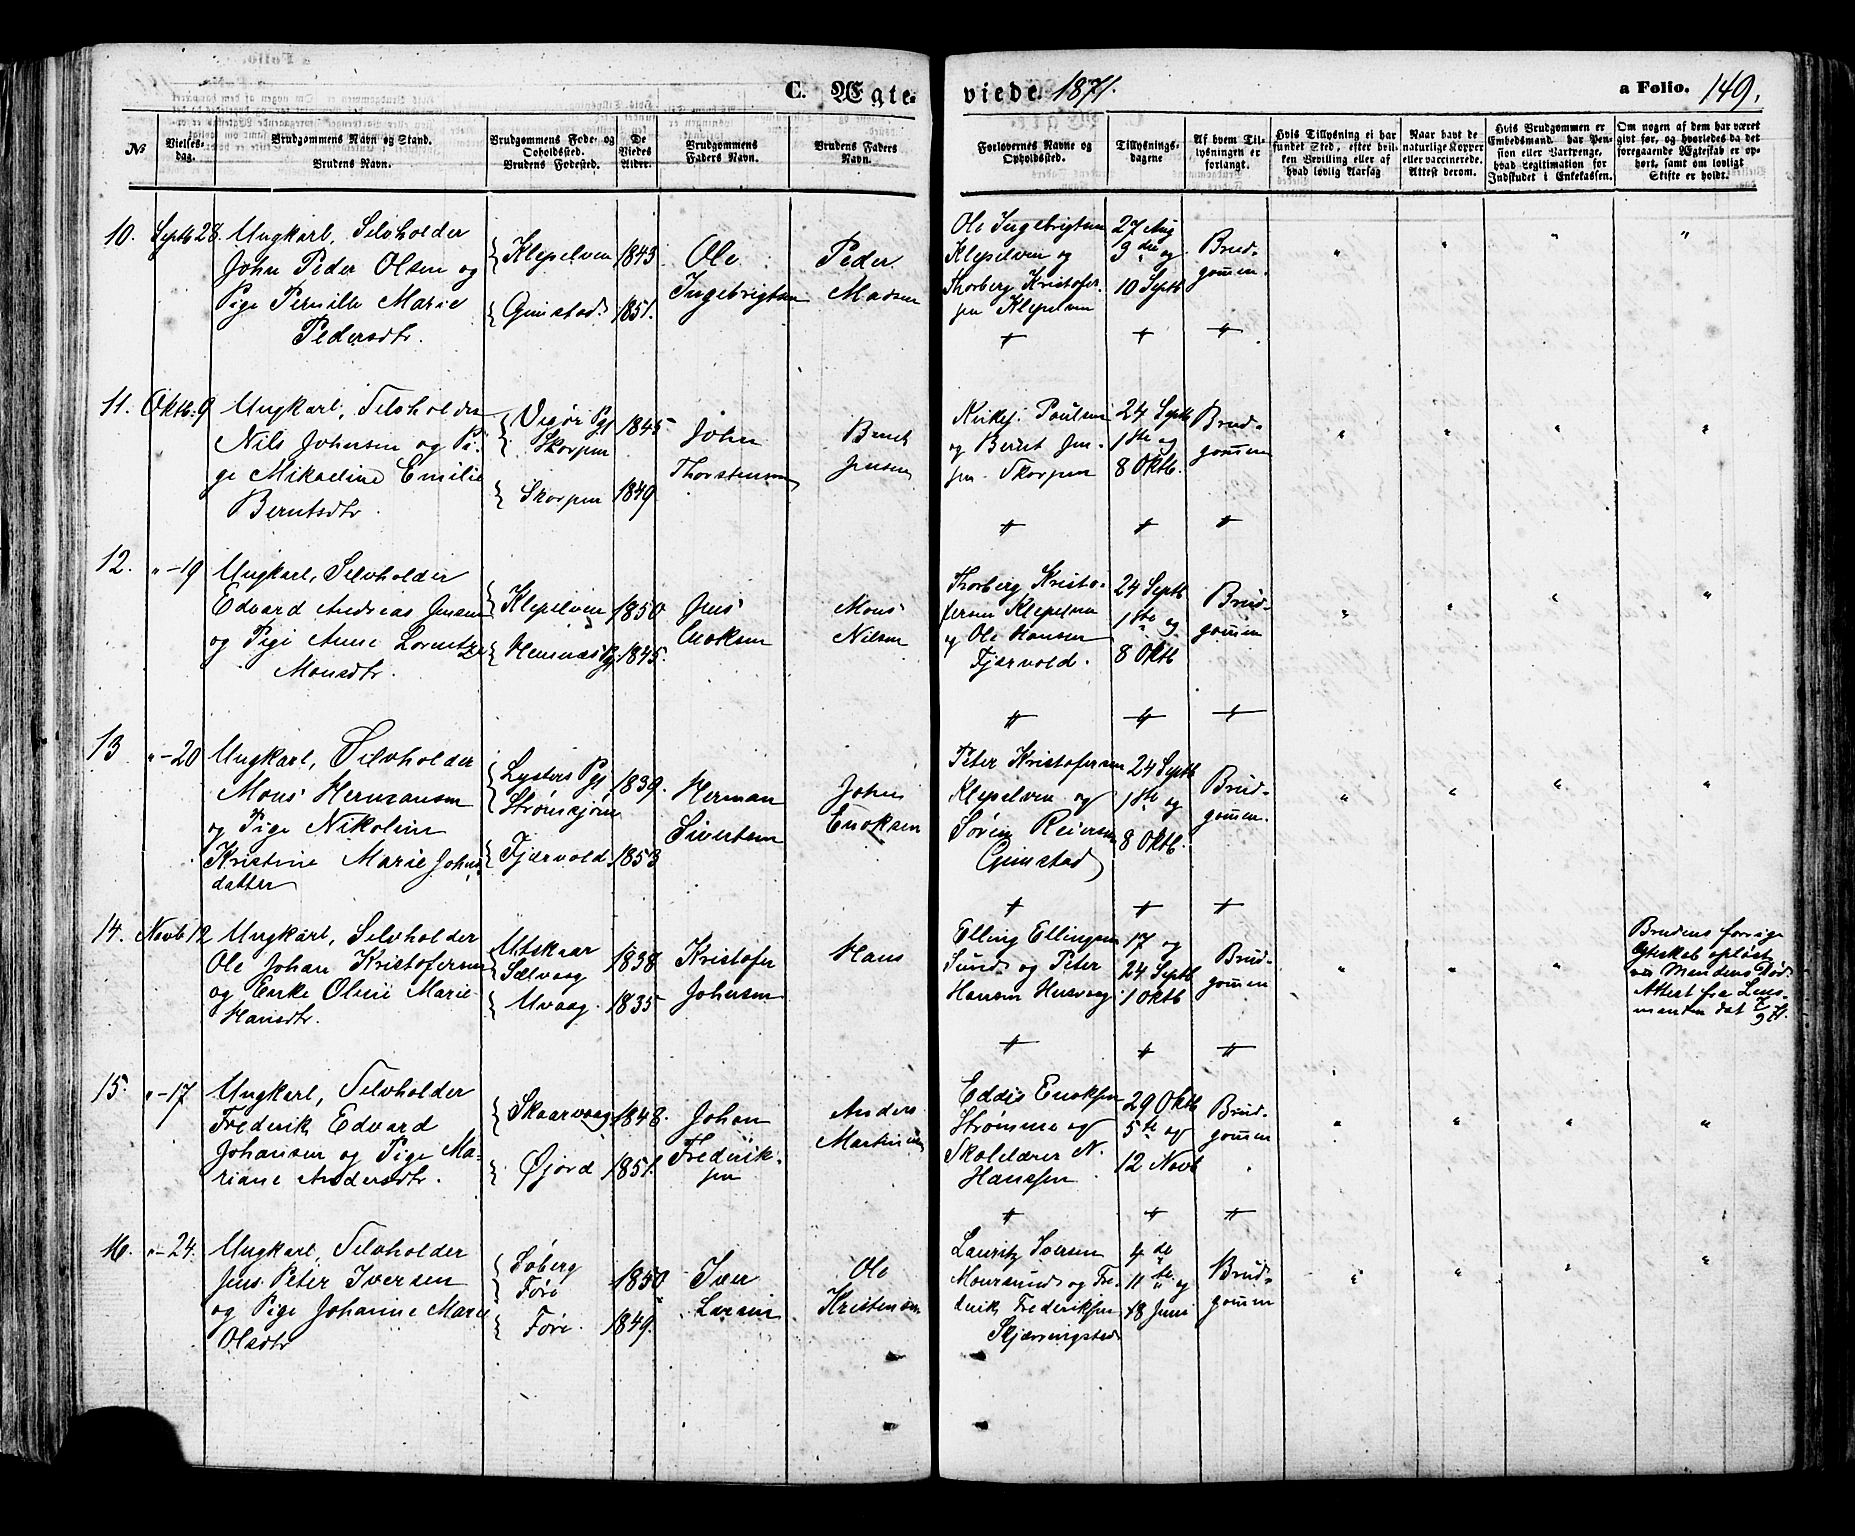 C. Ægteviede. 1871. a Folio. 149.
No
Vielses-dag.
Brudgommens Navn og Stand.
Brudens Navn.
Brudgommens Føde- og Opholdssted.
Brudens Fødested.
De Viedes Alder.
Brudgommens Faders Navn.
Brudens Faders Navn.
Forlovernes Navne og Opholdssted.
Tillysnings-dagene
Af hvem Tillysningen er forlangt.
Hvis Tillysning ei har fundet Sted, efter hvilken Bevilling eller af hvad lovlig Aarsag
Naar havt de naturlige Kopper eller vaccinerede. Attest derom.
Hvis Brudgommen er Embedsmand, har Pension eller Vartpenge, hvad Legitimation for Indskudet i Enkekassen.
Om nogen af dem har været gift før, og hvorledes da det foregaaende Ægteskab er ophørt, samt om lovligt Skifte er holdt.
10. Septb 28. Ungkarl, Selvholder
John Peder Olsen og
Pige Pernille Marie
Pedersdtr.
Klepelven 1843
Grimstad. 1851.
Ole
Ingebrigtsen
Peder
Madsen
Ole Ingebrigtsen
Klepelven og
Thorberg Kristofer-
sen Klepelven
27 Aug
3die og
10 Septb
Brud-
gommen.
11. Oktb. 9 Ungkarl, Selvholder
Nils Johnsen og Pi-
ge Mikaeline Emilie
Berntsdtr.
Vegø Pgj
Skorpen 1845
Skorpen 1849
John
Thorstensen
Bernt
Jensen
Poulsen
og Bernt Jen-
sen Skorpen
24 Septb
1ste og
8 Oktb.
Brud-
gommen
12. " -19 Ungkarl, Selvholder
Edvard Andreas Jensen
og Pige Anne Lorentze
Monsdtr.
Klepelven 1850
Hemnæs Pg. 1845.
Jens
Enoksen
Mons
Nilsen
Thorberg Kristo-
fersen Klepelven
og Ole Hansen
Fjærvold.
24 Septb
1ste og
8 Oktb
Brud-
gommen
13 " -20 Ungkarl, Selvholder
Mons Hermansen
og Pige Nikoline
Kristine Marie Johns-
datter
Lysters Pgj
1839.
Fjærvold. 1853
Herman
Sivertsen
Johns
Enoksen
Peter Kristofersen
Klepelven og
Søren Reiersen
Grimstad
24 Septb
1ste og
8 Oktb.
Brud-
gommen.
14. Novb 12 Ungkarl, Selvholder
Ole Johan Kristofersen
og Enke Oline Marie
Hansdtr.
Utskaar
Sælvaag 1838
Uvaag. 1835
Kristofer
Johnsen
Hans
Elling Ellingsen
Sund og Peter
Hansen Husvaag
17 og
24 Septb
1 Oktb
Brud-
gommen
Brudens forrige
Ægteskab opløst
ved Mandens Død.
Attest fra Lens-
manden dat
15. " -17 Ungkarl, Selvholder
Frederik Edvard
Johansen og Pige Ma-
riane Andersdtr.
Skaarvaag 1848.
Øjord 1851.
Johan
Frederik-
sen
Anders
Martinsen
Eddis Enoksen
Strømme og
Skolelærer N.
Hanssen
29 Oktb
5te og
12 Novb
Brud-
gommen
16. " -24. Ungkarl, Selvholder
Jens Peter Iversen
og Pige Johanne Marie
Olsdtr
Søberg
Føre 1850
Føre. 1849.
Iver
Larsen
Ole
Kristensen
Lauritz Iversen
Maursund og Fre-
derik Frederiksen
Skjærringstad
4de
11te og
18 Juni
Brud-
gommen